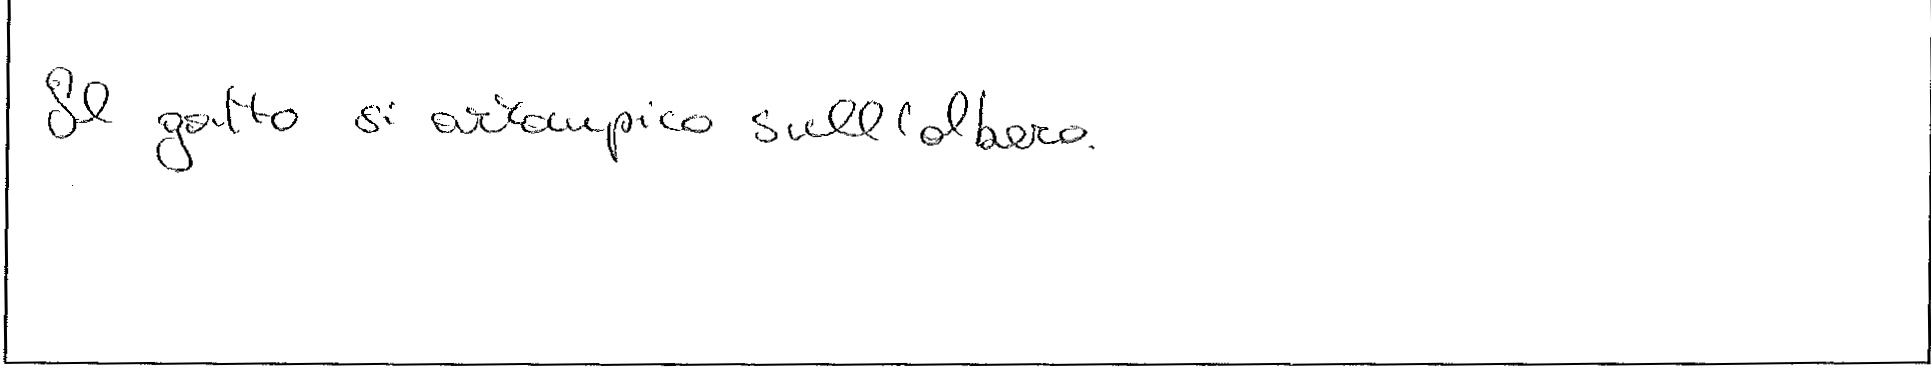 Il gatto si arrampico sull'albero.